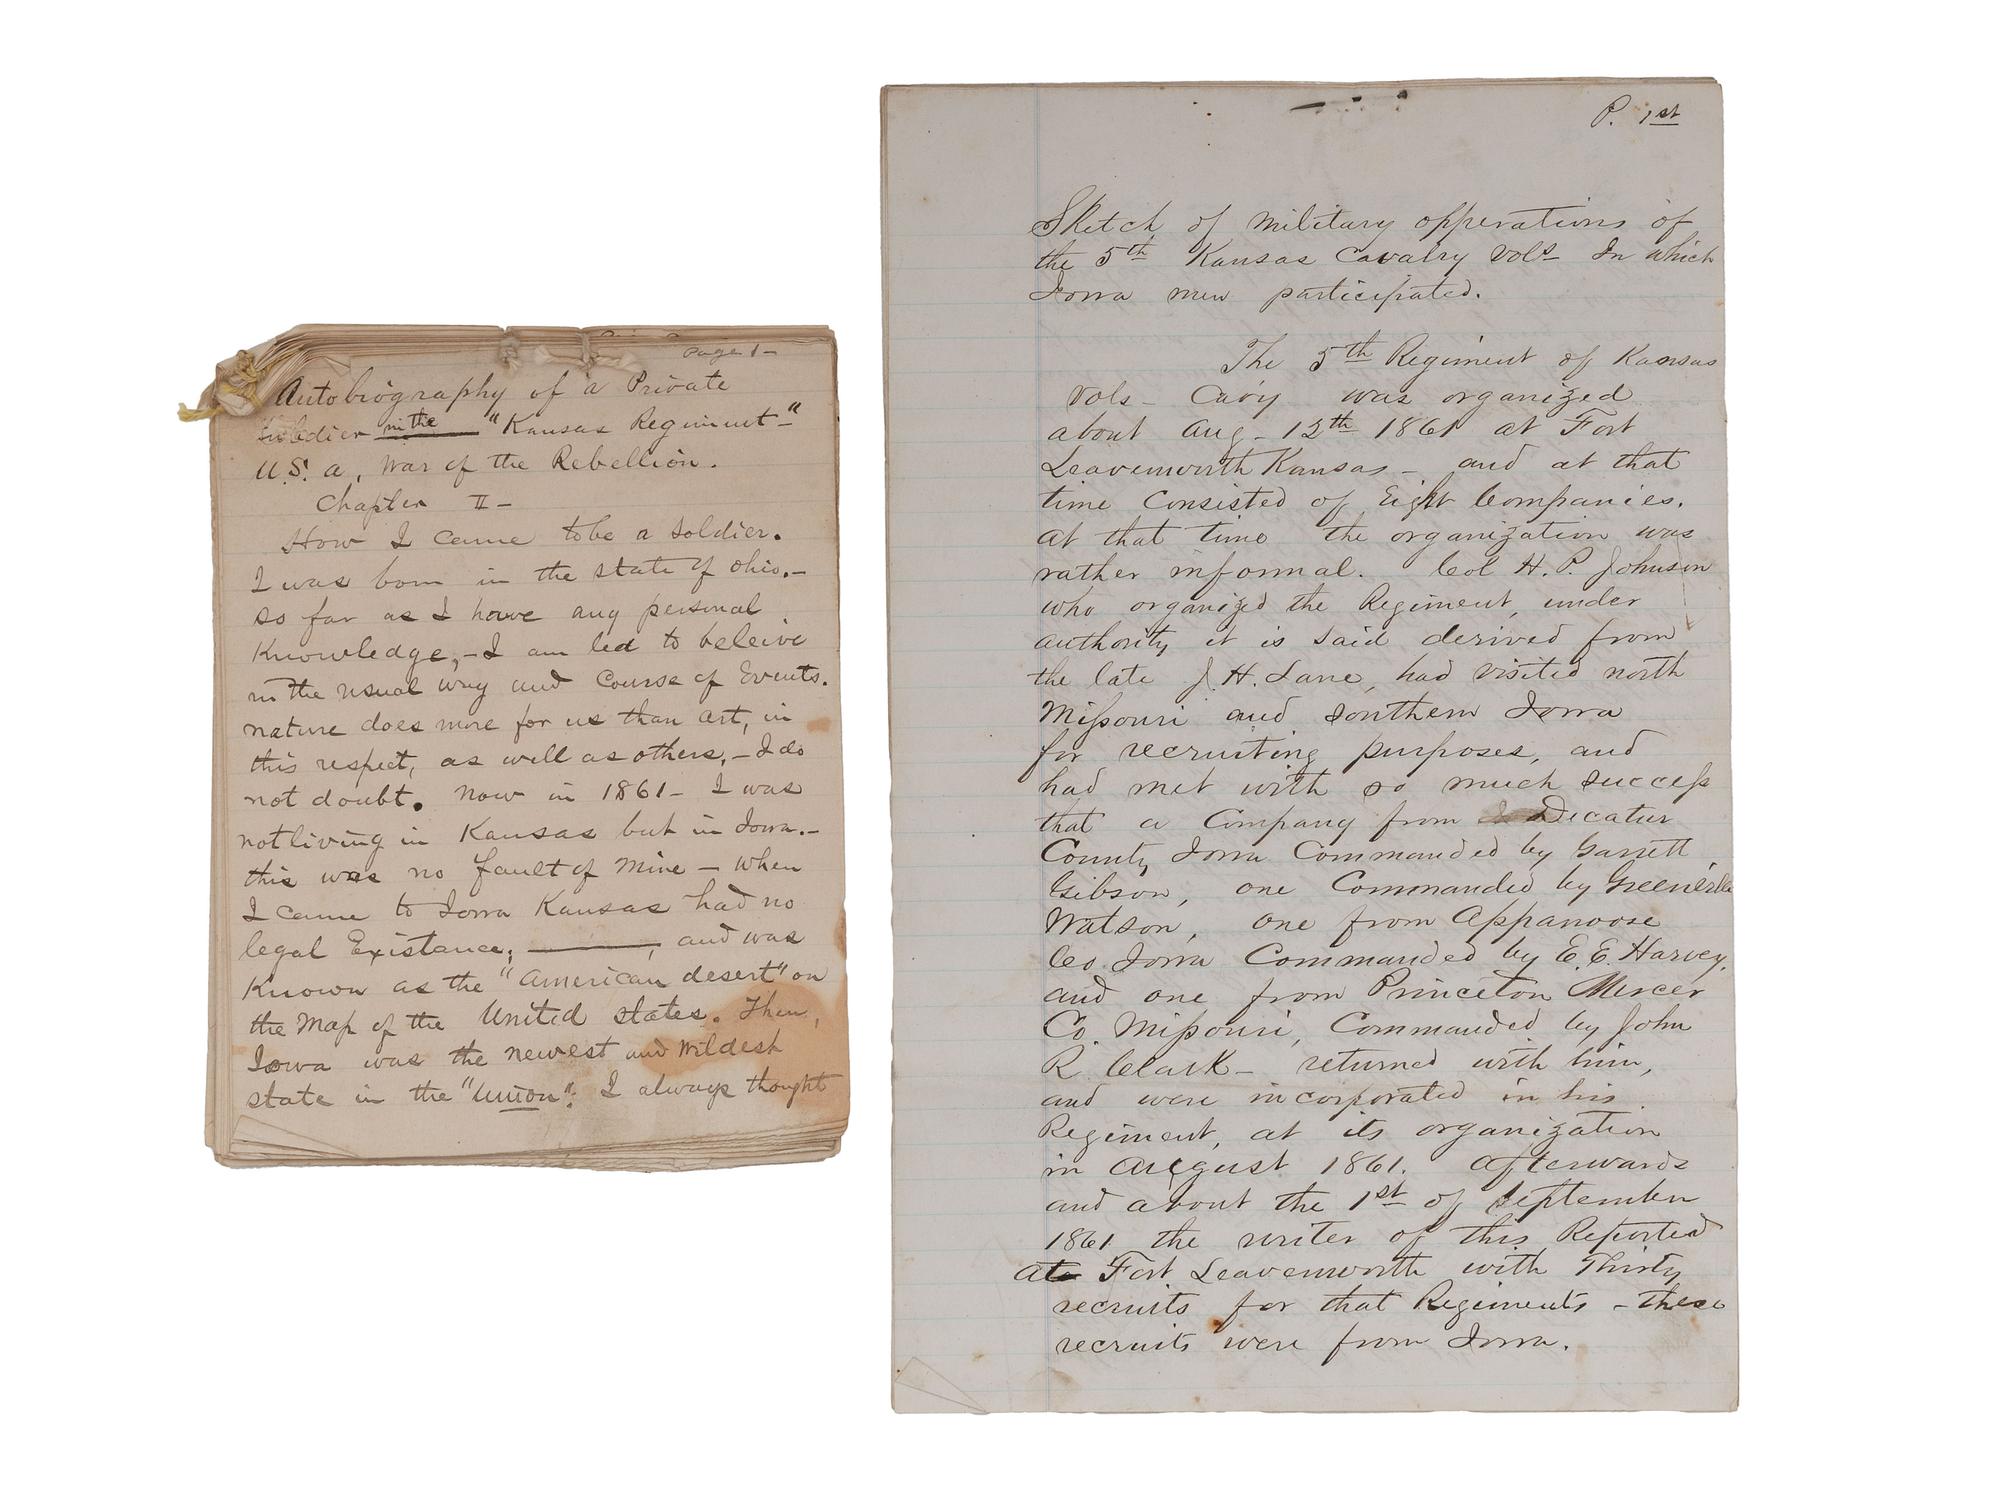 Page 1-
Autobiography of a Private
Soldier in the "Kansas Regiment-"
U.S. a, War of the Rebellion.
Chapter II-
How I came to be a soldier.
I was born in the state of Ohio.-
so far as I have any personal
Knowledge,- I am led to beleive
in the usual way and Course of Events.
nature does more for us than art, in
this respect, as well as others,- I do
not doubt. Now in 1861- I was
not living in Kansas but in Iowa.-
this was no fault of mine - when
I came to Iowa Kansas had no
legal Existance; ———, and was
Known as the "American desert" on
the Map of the United states. Then,
Iowa was the newest and Wildest
state in the "Union": I always thought
P. 1st
Sketch of military opperations of
the 5th Kansas Cavalry Vols- In which
Iowa men participated.
The 5th Regiment of Kansas
Vols- Cavy was organized
about Aug- 12th 1861 at Fort
Leavenworth Kansas- and at that
time Consisted of Eight Companies.
at that time the organization was
rather informal. Col H. P. Johnson
who organized the Regiment, under
authority it is said derived from
the late J. H. Lane, had visited north
Missouri and southern Iowa
for recruiting purposes, and
had met with so much success
that a Company from Decatur
County Iowa Commanded by Garrett
Gibson, one Commanded by Greenville
Watson, one from Appanoose
Co. Iowa Commanded by E. E. Harvey,
and one from Princeton Mercer
Co. Missouri, Commanded by John
R. Clark- returned with him,
and were incorporated in his
Regiment, at its organization
in August 1861. Afterwards
and about the 1st of September
1861 the writer of this Reported
at Fort Leavenworth with Thirty
recruits for that Regiments - these
recruits were from Iowa.